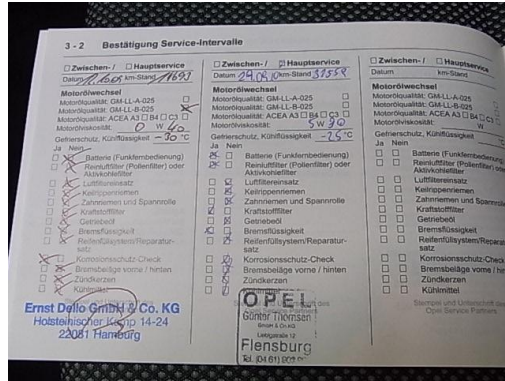 3 - 2 Bestätigung Service-Intervalle
Zwischen- / Hauptservice
Datum km-Stand
Motorölwechsel
Motorölqualität: GM-LL-A-025
Motorölqualität: GM-LL-B-025
Motorölqualität: ACEA A3 B4 C3
Motorviskosität: 0 W 40
Gefrierschutz, Kühlflüssigkeit -30 °C
Ja Nein
Batterie (Funkfernbedienung)
Reinluftfilter (Pollenfilter) oder
Aktivkohlefilter
Luftfiltereinsatz
Keilrippenriemen
Zahnriemen und Spannrolle
Kraftstofffilter
Getriebeöl
Bremsflüssigkeit
Reifenfüllsystem/Reparatur-
satz
Korrosionsschutz-Check
Bremsbeläge vorne / hinten
Zündkerzen
Kühlmittel
Ernst Dello GmbH & Co. KG
Holsteinischer Kamp 14-24
22081 Hamburg
Zwischen- / Hauptservice
Datum km-Stand
Motorölwechsel
Motorölqualität: GM-LL-A-025
Motorölqualität: GM-LL-B-025
Motorölqualität: ACEA A3 B4 C3
Motorölviskosität: 5 W 30
Gefrierschutz, Kühlflüssigkeit -25 °C
Ja Nein
Batterie (Funkfernbedienung)
Reinluftfilter (Pollenfilter) oder
Aktivkohlefilter
Luftfiltereinsatz
Keilrippenriemen
Zahnriemen und Spannrolle
Kraftstofffilter
Getriebeöl
Bremsflüssigkeit
Reifenfüllsystem/Reparatur-
satz
Korrosionsschutz-Check
Bremsbeläge vorne / hinten
Zündkerzen
Kühlmittel
OPEL
Günter Thomsen
GmbH & Co KG
Flensburg
Tel. (04 61)
Zwischen- / Hauptservice
Datum km-Stand
Motorölwechsel
Motorölqualität: GM-LL-A-025
Motorölqualität: GM-LL-B-025
Motorölqualität: ACEA A3 B4
Motorölviskosität: W
Gefrierschutz, Kühlflüssigkeit
Ja Nein
Batterie (Funkfernbedienung)
Reinluftfilter (Pollenfilter)
Aktivkohlefilter
Luftfiltereinsatz
Keilrippenriemen
Zahnriemen und Spannrolle
Kraftstofffilter
Getriebeöl
Bremsflüssigkeit
Reifenfüllsystem/Reparatur-
satz
Korrosionsschutz-Check
Bremsbeläge vorne / hinten
Zündkerzen
Kühlmittel
Stempel und Unterschrift des
Opel Service Partners